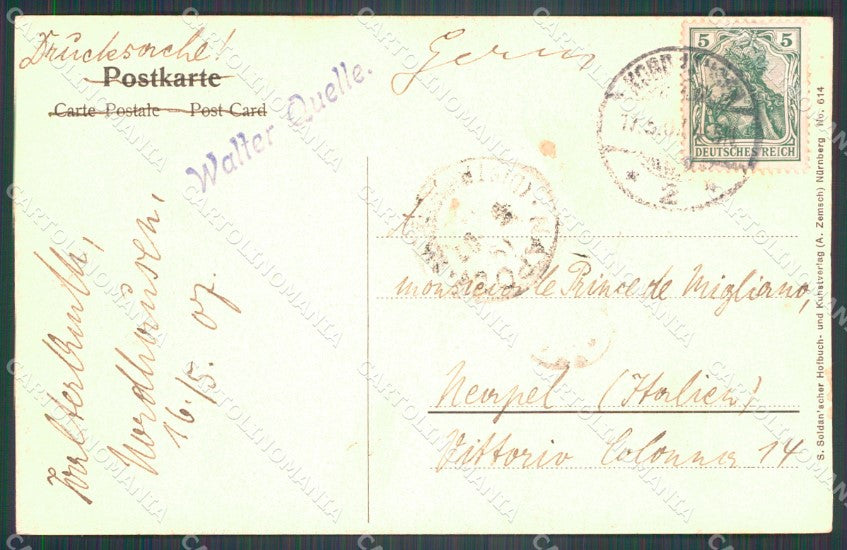 Drucksache!
Postkarte
Carte Postale — Post Card
Walter Quelle.
5 5
DEUTSCHES REICH
2
à
monsieur le Prince de Migliano,
Neapel (Italien)
Vittorio Colonna 14
Nordhausen,
16./5. 07.
S. Soldan'scher Hofbuch- und Kunstverlag (A. Zemsch) Nürnberg No. 614
CARTOLINOMANIA